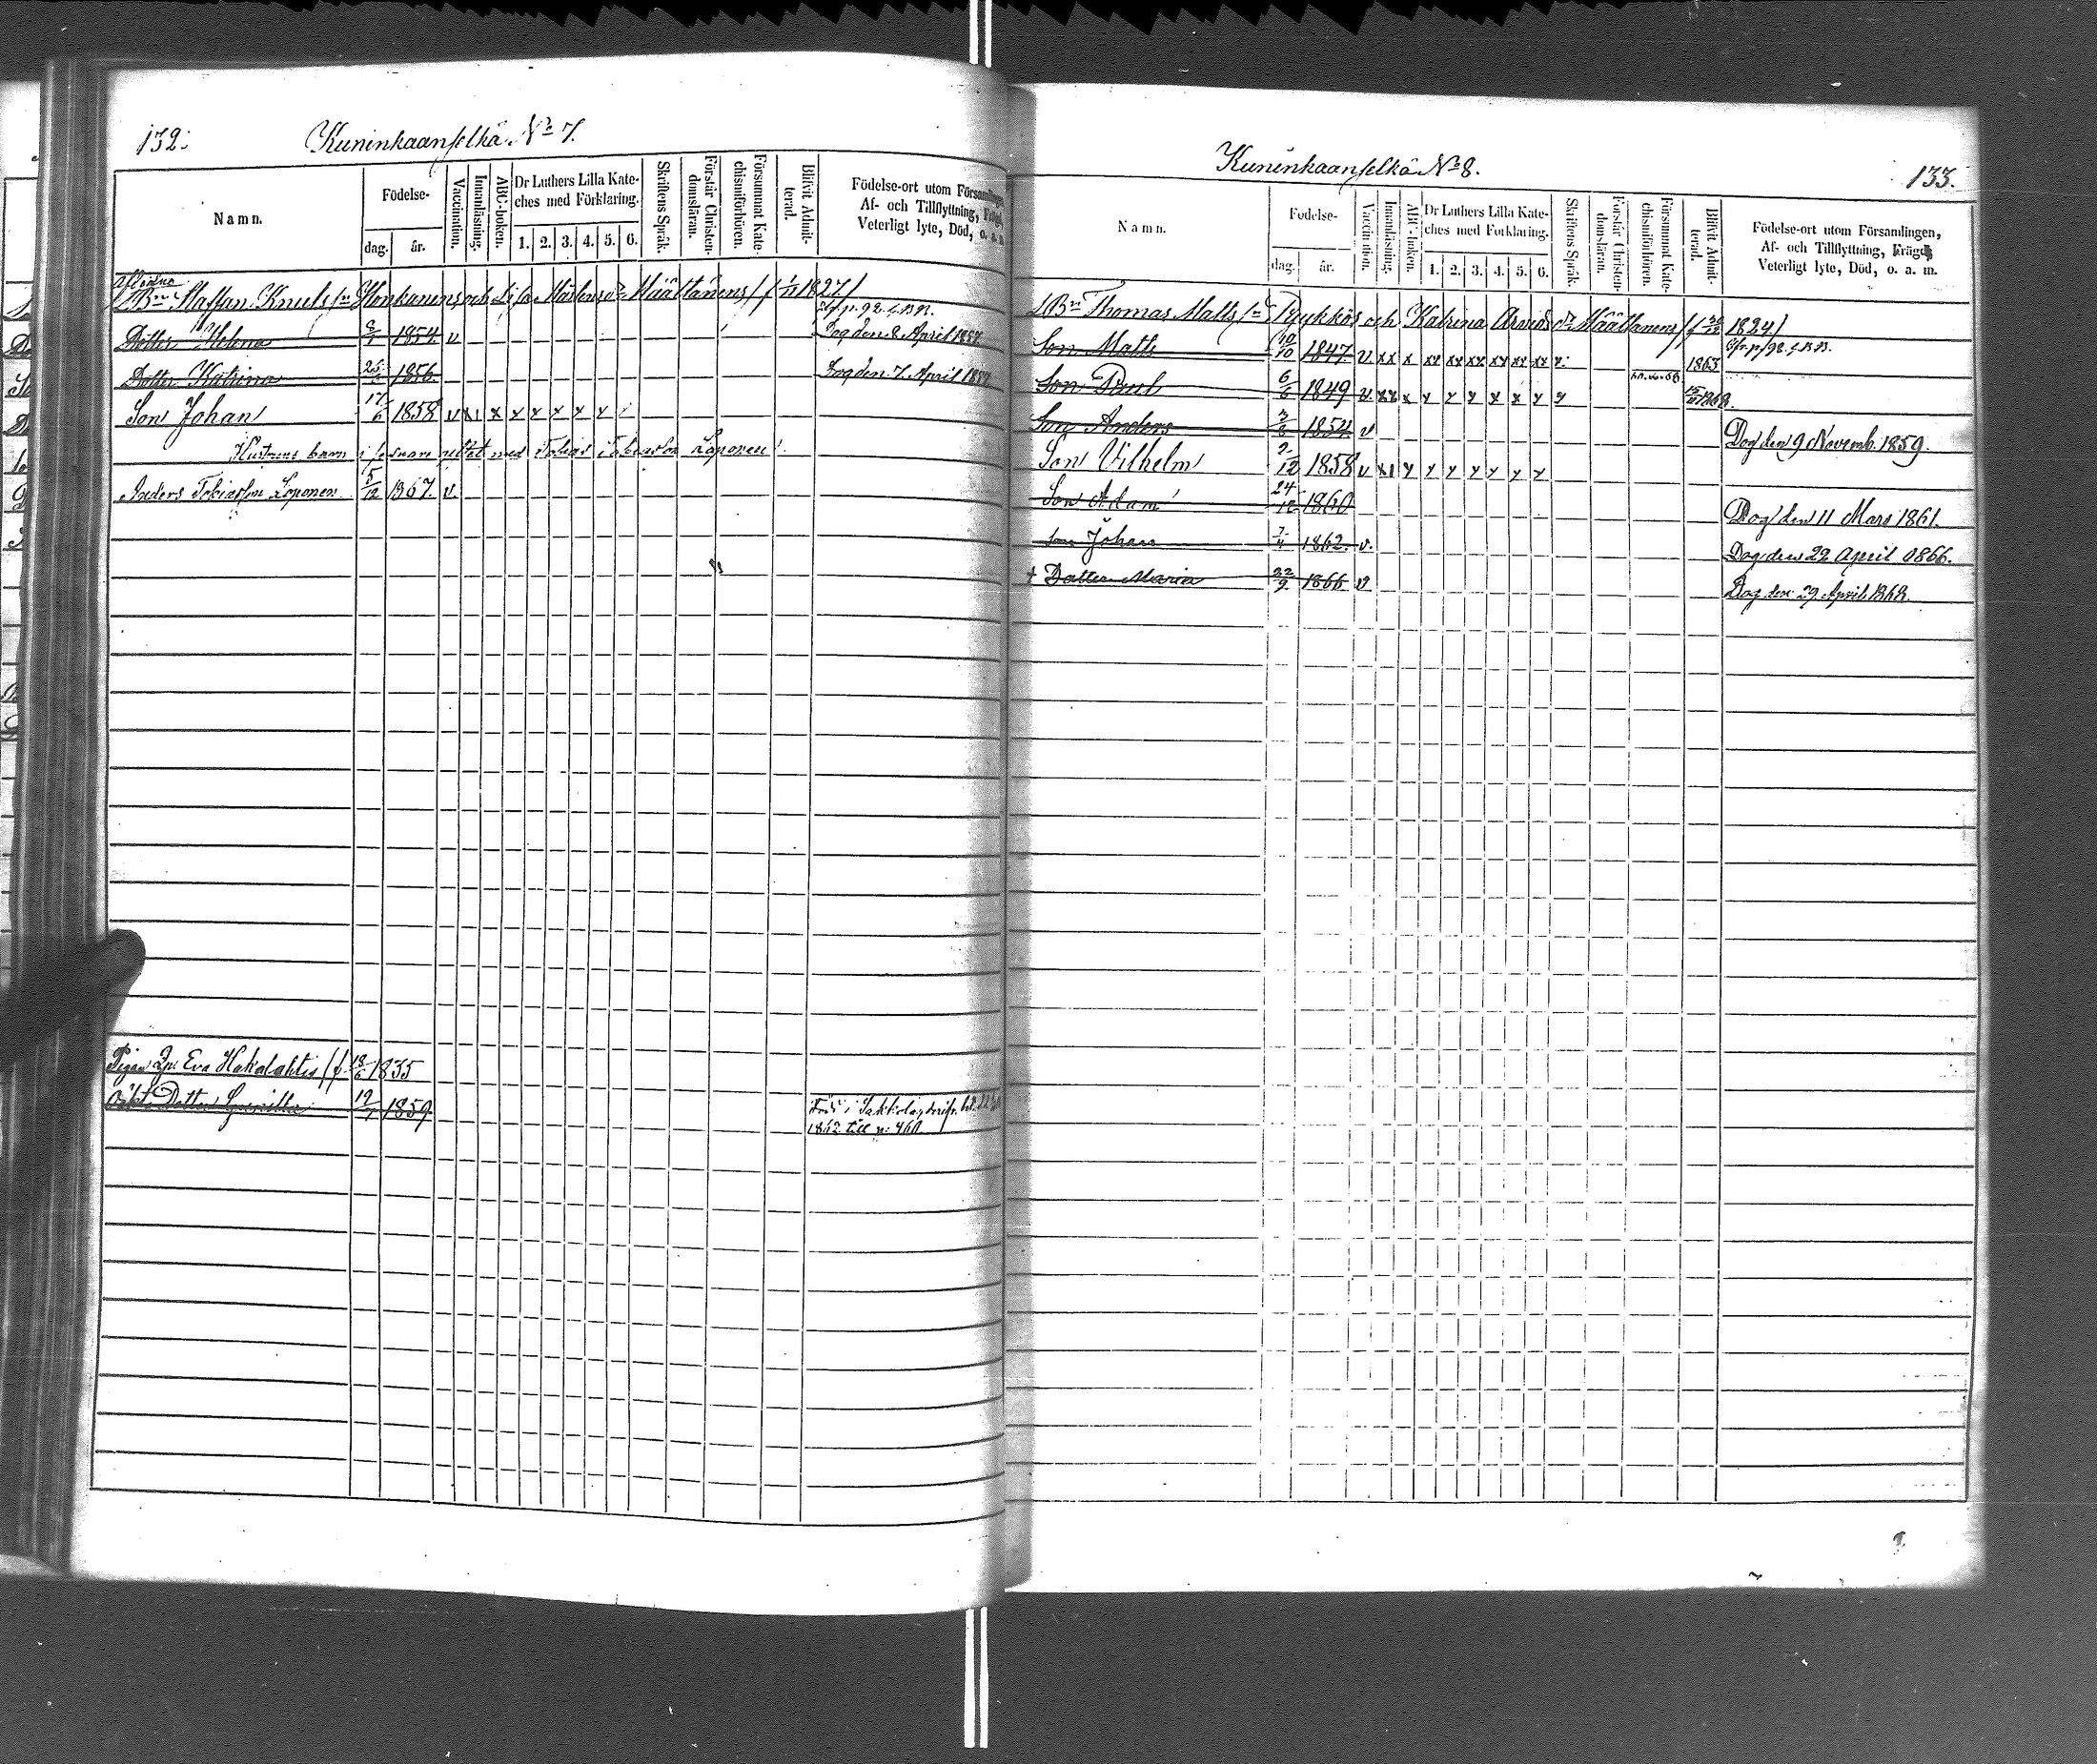 132.
Kuninkaanselkä No 7.
Namn.
Födelse-
dag.
år.
Vaccination.
Innanläsning.
ABC-boken.
Dr Luthers Lilla Kate-
ches med Förklaring.
1. 2. 3. 4. 5. 6.
Skriftens Språk.
Förstår Christen-
domsläran.
Försummat Kate-
chismiförhören.
Blifvit Admit-
terad.
Födelse-ort utom Församlingen,
Af- och Tillflyttning, Frägd,
Veterligt lyte, Död, o. a. m.
Aflidne
LBn Staffan Knuts sn Honkanens och Lisa Mårtens dr Määttänens / f 1827/
p. 92. f. B.B.
Dotter Helena 1854. v Dog den 8 April 1857
Dotter Katrina 1856. Dog den 7 April 1857
Son Johan 17/6 1858 v x1 x x x x x v
Hustruns barn i senare giftet med Tobias Tobiasson Loponen
Anders Tobiasson Loponen 5/12 1867. v.
Pigan Eva Hakalahtis / f 18/6 1835
oäkta Dotter Gunilla 19/ 1859. Född i Sakkola,
1862 till p: 460
Kuninkaanselkä No 8.
133.
Namn.
Födelse-
dag.
år.
Vaccination.
Innanläsning.
ABC-boken.
Dr Luthers Lilla Kate-
ches med Förklaring.
1. 2. 3. 4. 5. 6.
Skriftens Språk.
Förstår Christen-
domsläran.
Försummat Kate-
chismiförhören.
Blifvit Admit-
terad.
Födelse-ort utom Församlingen,
Af- och Tillflyttning, Frägd,
Veterligt lyte, Död, o. a. m.
LBn Thomas Matts sn Pyykkös och Katrina Arvids dr Määttänens / f 1824/
Cfr. p. 98. f. B.B.
Son Matts 10/10 1847. v xx x xx xx xx xx xx xx x. 1863
Son Paul 6/6 1849 v. xx x x x x x x x x 1868.
Son Anders 1854. v Dog den 9 Novemb. 1859.
Son Vilhelm 2/12 1858 v x1 x x x x x x x
Son Adam 24/12 1860 Dog den 11 Mars 1861.
Son Johan 7/4 1862. v. Dog den 22 April 1866.
+ Dotter Maria 22/9 1866 v Dog den 29 April 1868.